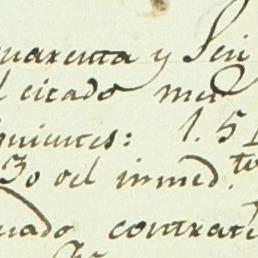 uarenta y Seis
l citado mes
guientes: 1. 5
30 del inmed.to
uado contrat